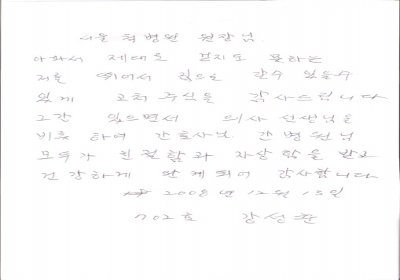 서울 척병원 원장님.
아파서 제대로 걷지도 못하는
저를 뛰어서 집으로 갈수 있을수
있게 고쳐 주심을 감사드립니다
그간 있으면서 의사 선생님을
비롯 하여 간호사님. 간병원님
모두가 친절함과 자상함을 받고
건강하게 완쾌되어 감사합니다
2008년 12월 13일
702호 강성환